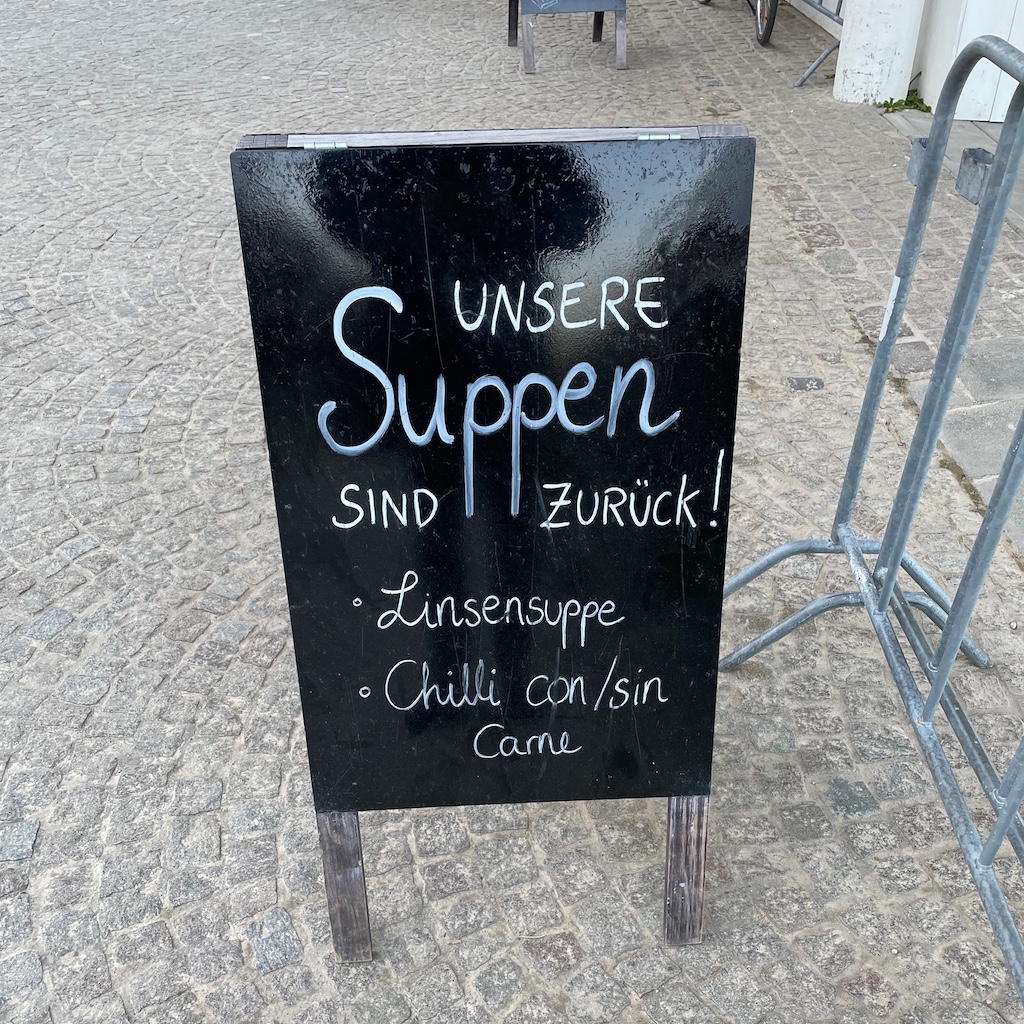 UNSERE
Suppen
SIND ZURÜCK!
◦ Linsensuppe
◦ Chilli con/sin
Carne